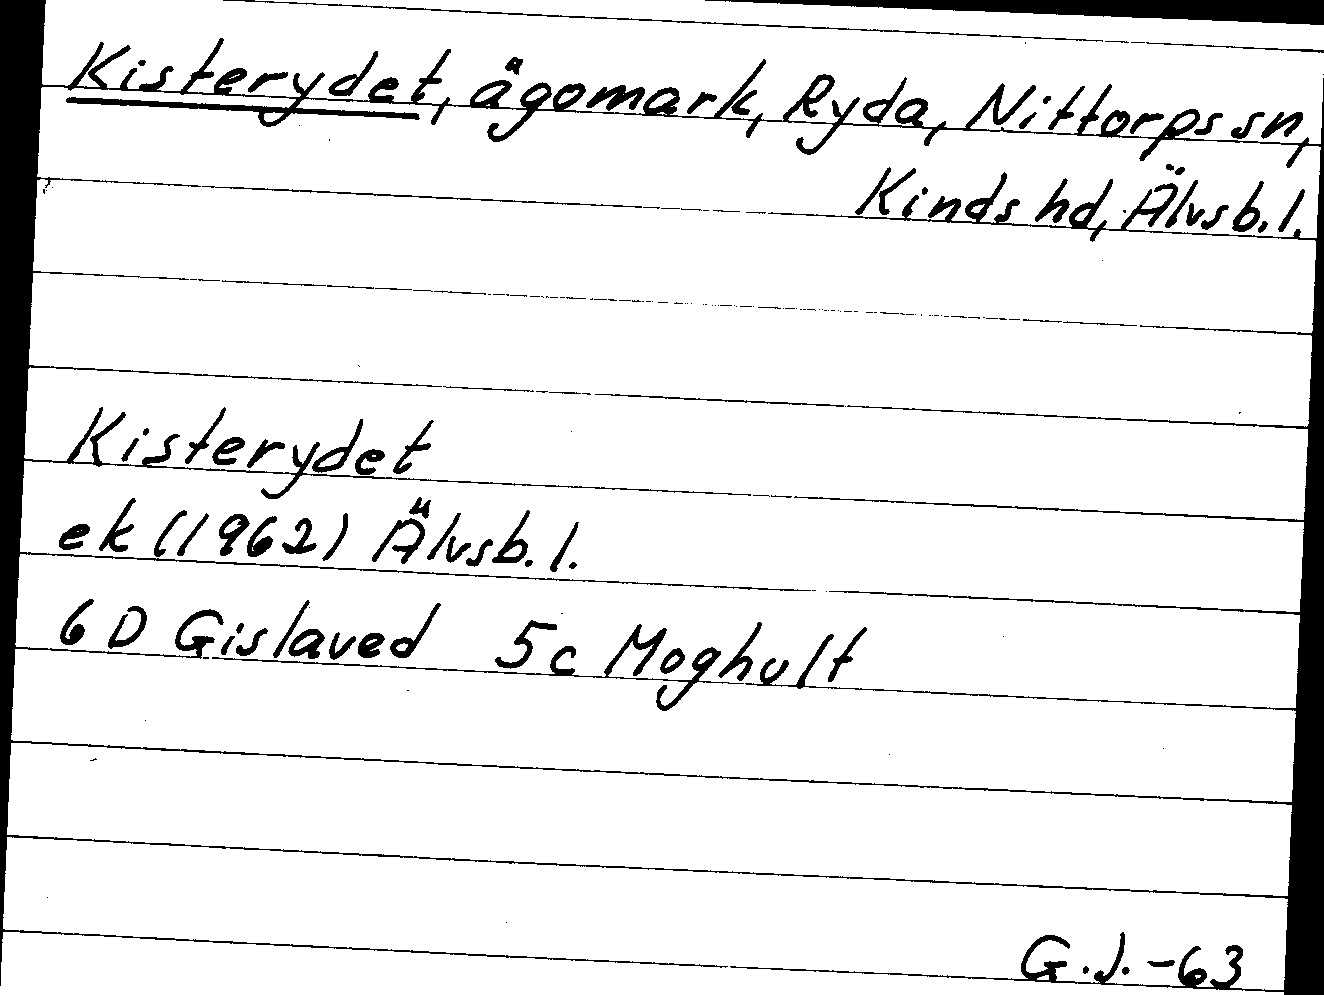 Kisterydet, ägomark, Ryda, Nittorps sn,
Kinds hd, Älvsb. l.
Kisterydet
ek (1962) Älvsb. l.
6 D Gislaved 5c Moghult
G.J. -63